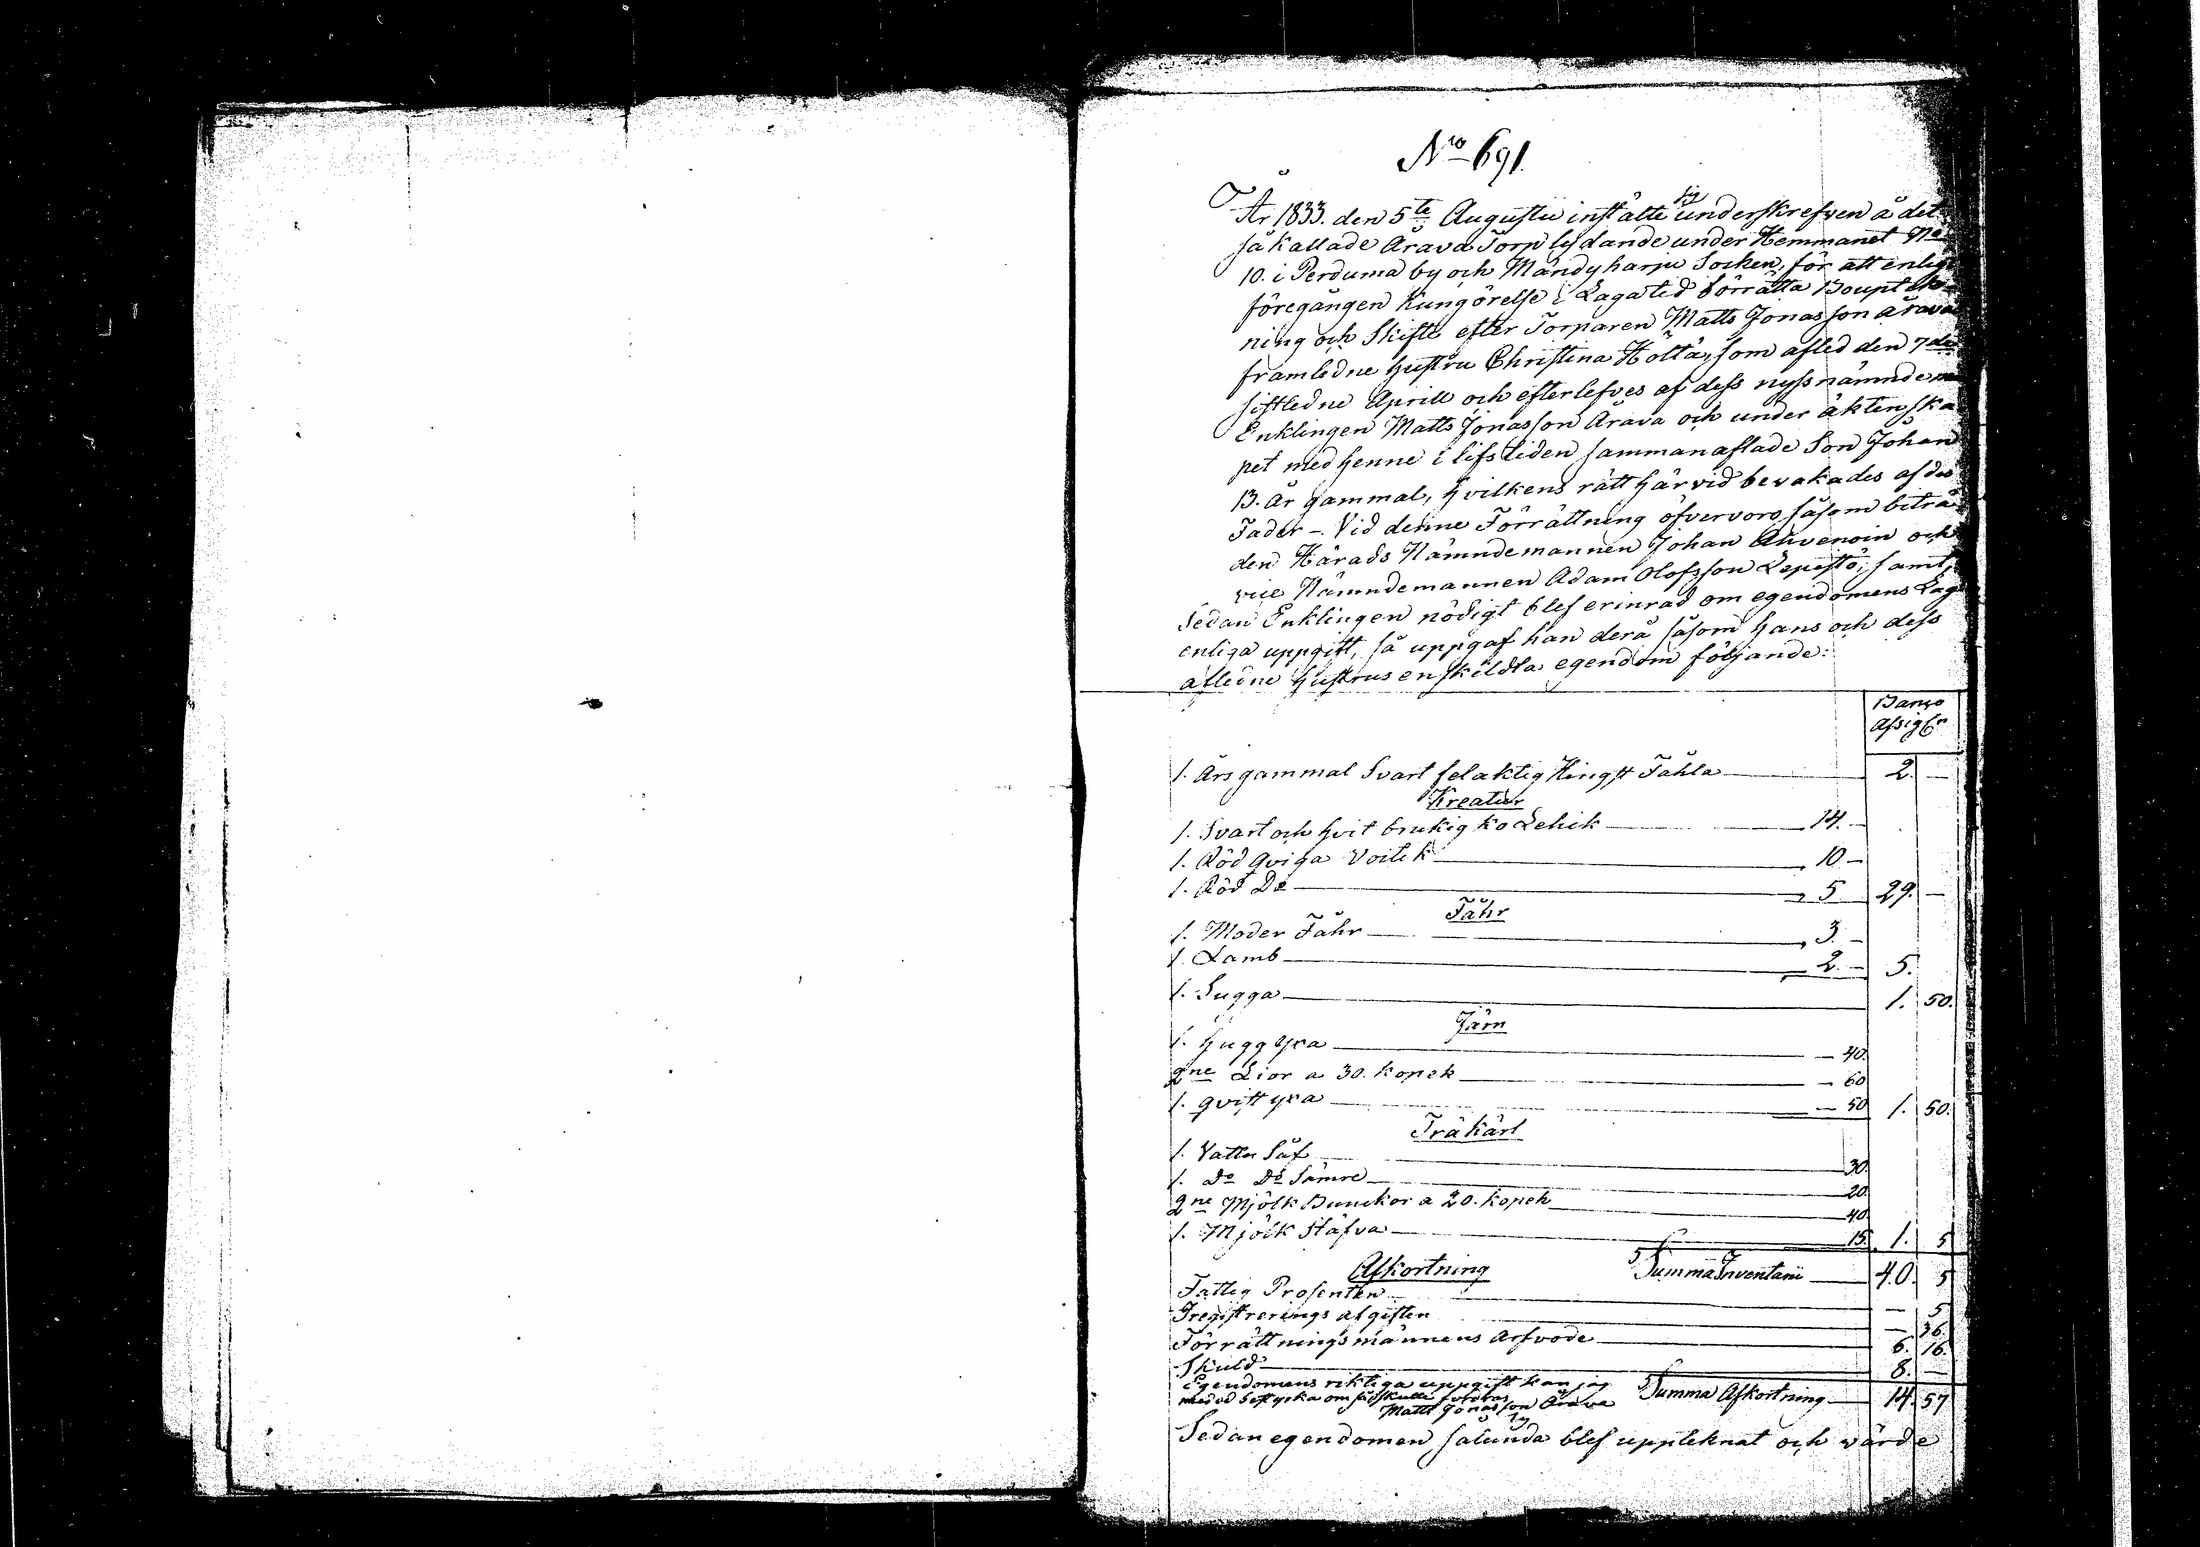 No 691.
År 1833. den 5te Augustii instälte sig underskrefven å det
så kallade Årava Torp lydande under Hemmanet No
10. i Perduma by och Mändyharju Socken, för att enligt
föregången Kungörelse i Lagatid förrätta Boupptek-
ning och Skifte efter Torparen Matts Jonasson Årava
framledne hustru Christina Höltä, som afled den 7de
sistledne Aprill och efterlefves af dess nyssnämnde man
Enklingen Matts Jonasson Årava och under äktenska-
pet med henne i lifstiden sammanaflade Son Johan
13. år gammal, hvilkens rätt härvid bevakades af des
Fader -. Vid denne Förrättning öfvervoro såsom biträ-
den Härads Nämndemannen Johan Ahvenoin och
vice Nämndemannen Adam Olofsson Lepistö, samt,
Sedan Enklingen nödigt blef erinrad om egendomens Lag
enliga uppgift, så uppgaf han derå såsom hans och dess
afledne hustrus enskildta egendom följande:
Banco
Assigtr
1. Års gammal Svart felaktig Hingst Fåhla 2. —
Kreatur
1. Svart och hvit brukig ko Lehik 14. —
1. Röd Qviga Voitik 10 —
1. Röd Do 5 29. —
Fåhr
1. Moder Fåhr 3. —
1. Lamb 2. — 5.
1. Sugga 1. 50.
Järn
1. Hugg yxa — 40.
2ne Lior a 30. kopek — 60
1. qvist yxa — 50 1. 50.
Träkärl
1. Vattu Så 30.
1. Do Do Sämre 20
2ne Mjölk Bunckor a 20. kopek 40.
1. Mjölk Stäfva 15. 1. 5
Summa Inventarii 40. 5
Afkortning
Fattig Prosenten — 5
Iregistrerings afgiften — 36.
Förrättningsmännens Arfvode 6. 16.
Skuld 8. —
Egendomens riktiga uppgift kan jag
med ed bestyrka om så skulle fordras
Matts Jonasson Årava
Summa Afkortning 14. 57
Sedan egendomen sålunda blef uppteknat och värde